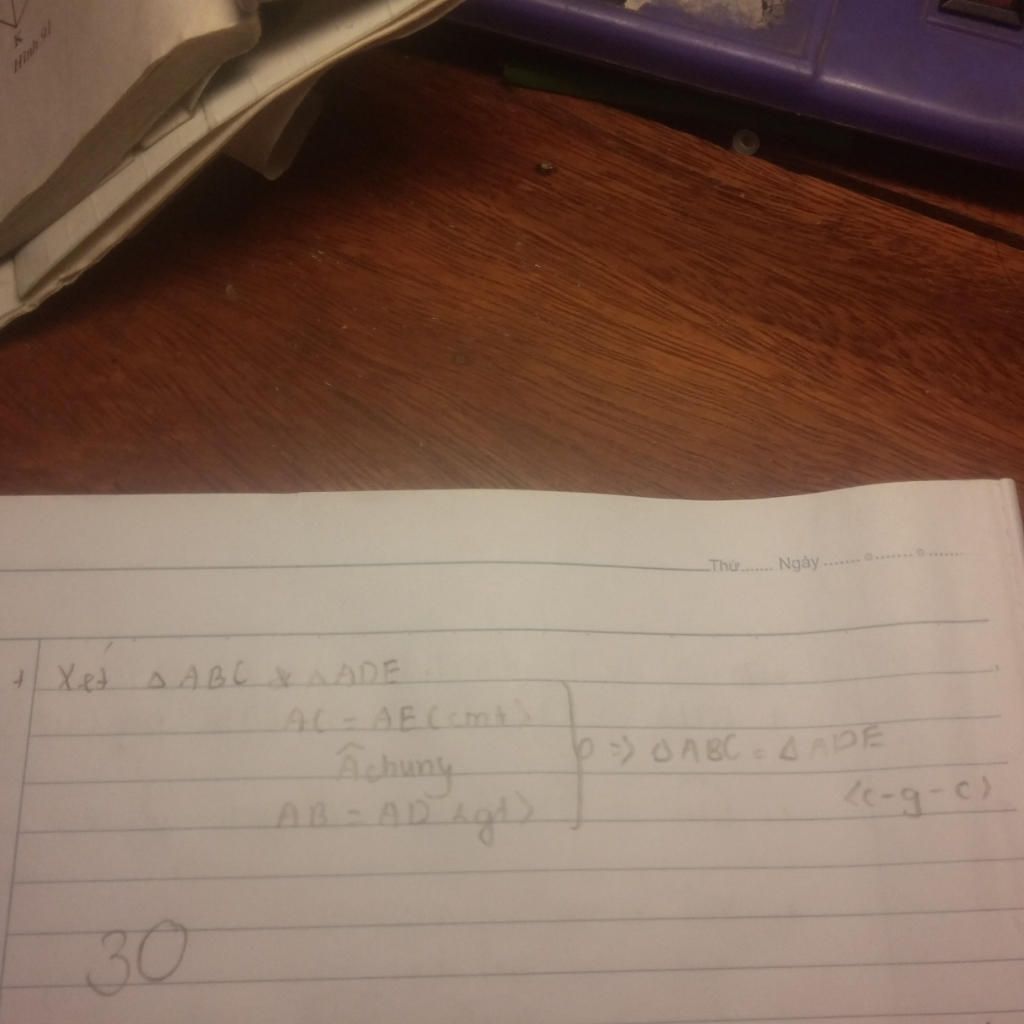 K
Hình 91
Thứ....... Ngày ....... o ....... o .......
+ Xét △ ABC & △ ADE
AC = AE (cmt)
Â chung
AB = AD <gt>
=> △ ABC = △ ADE
<c-g-c>
30